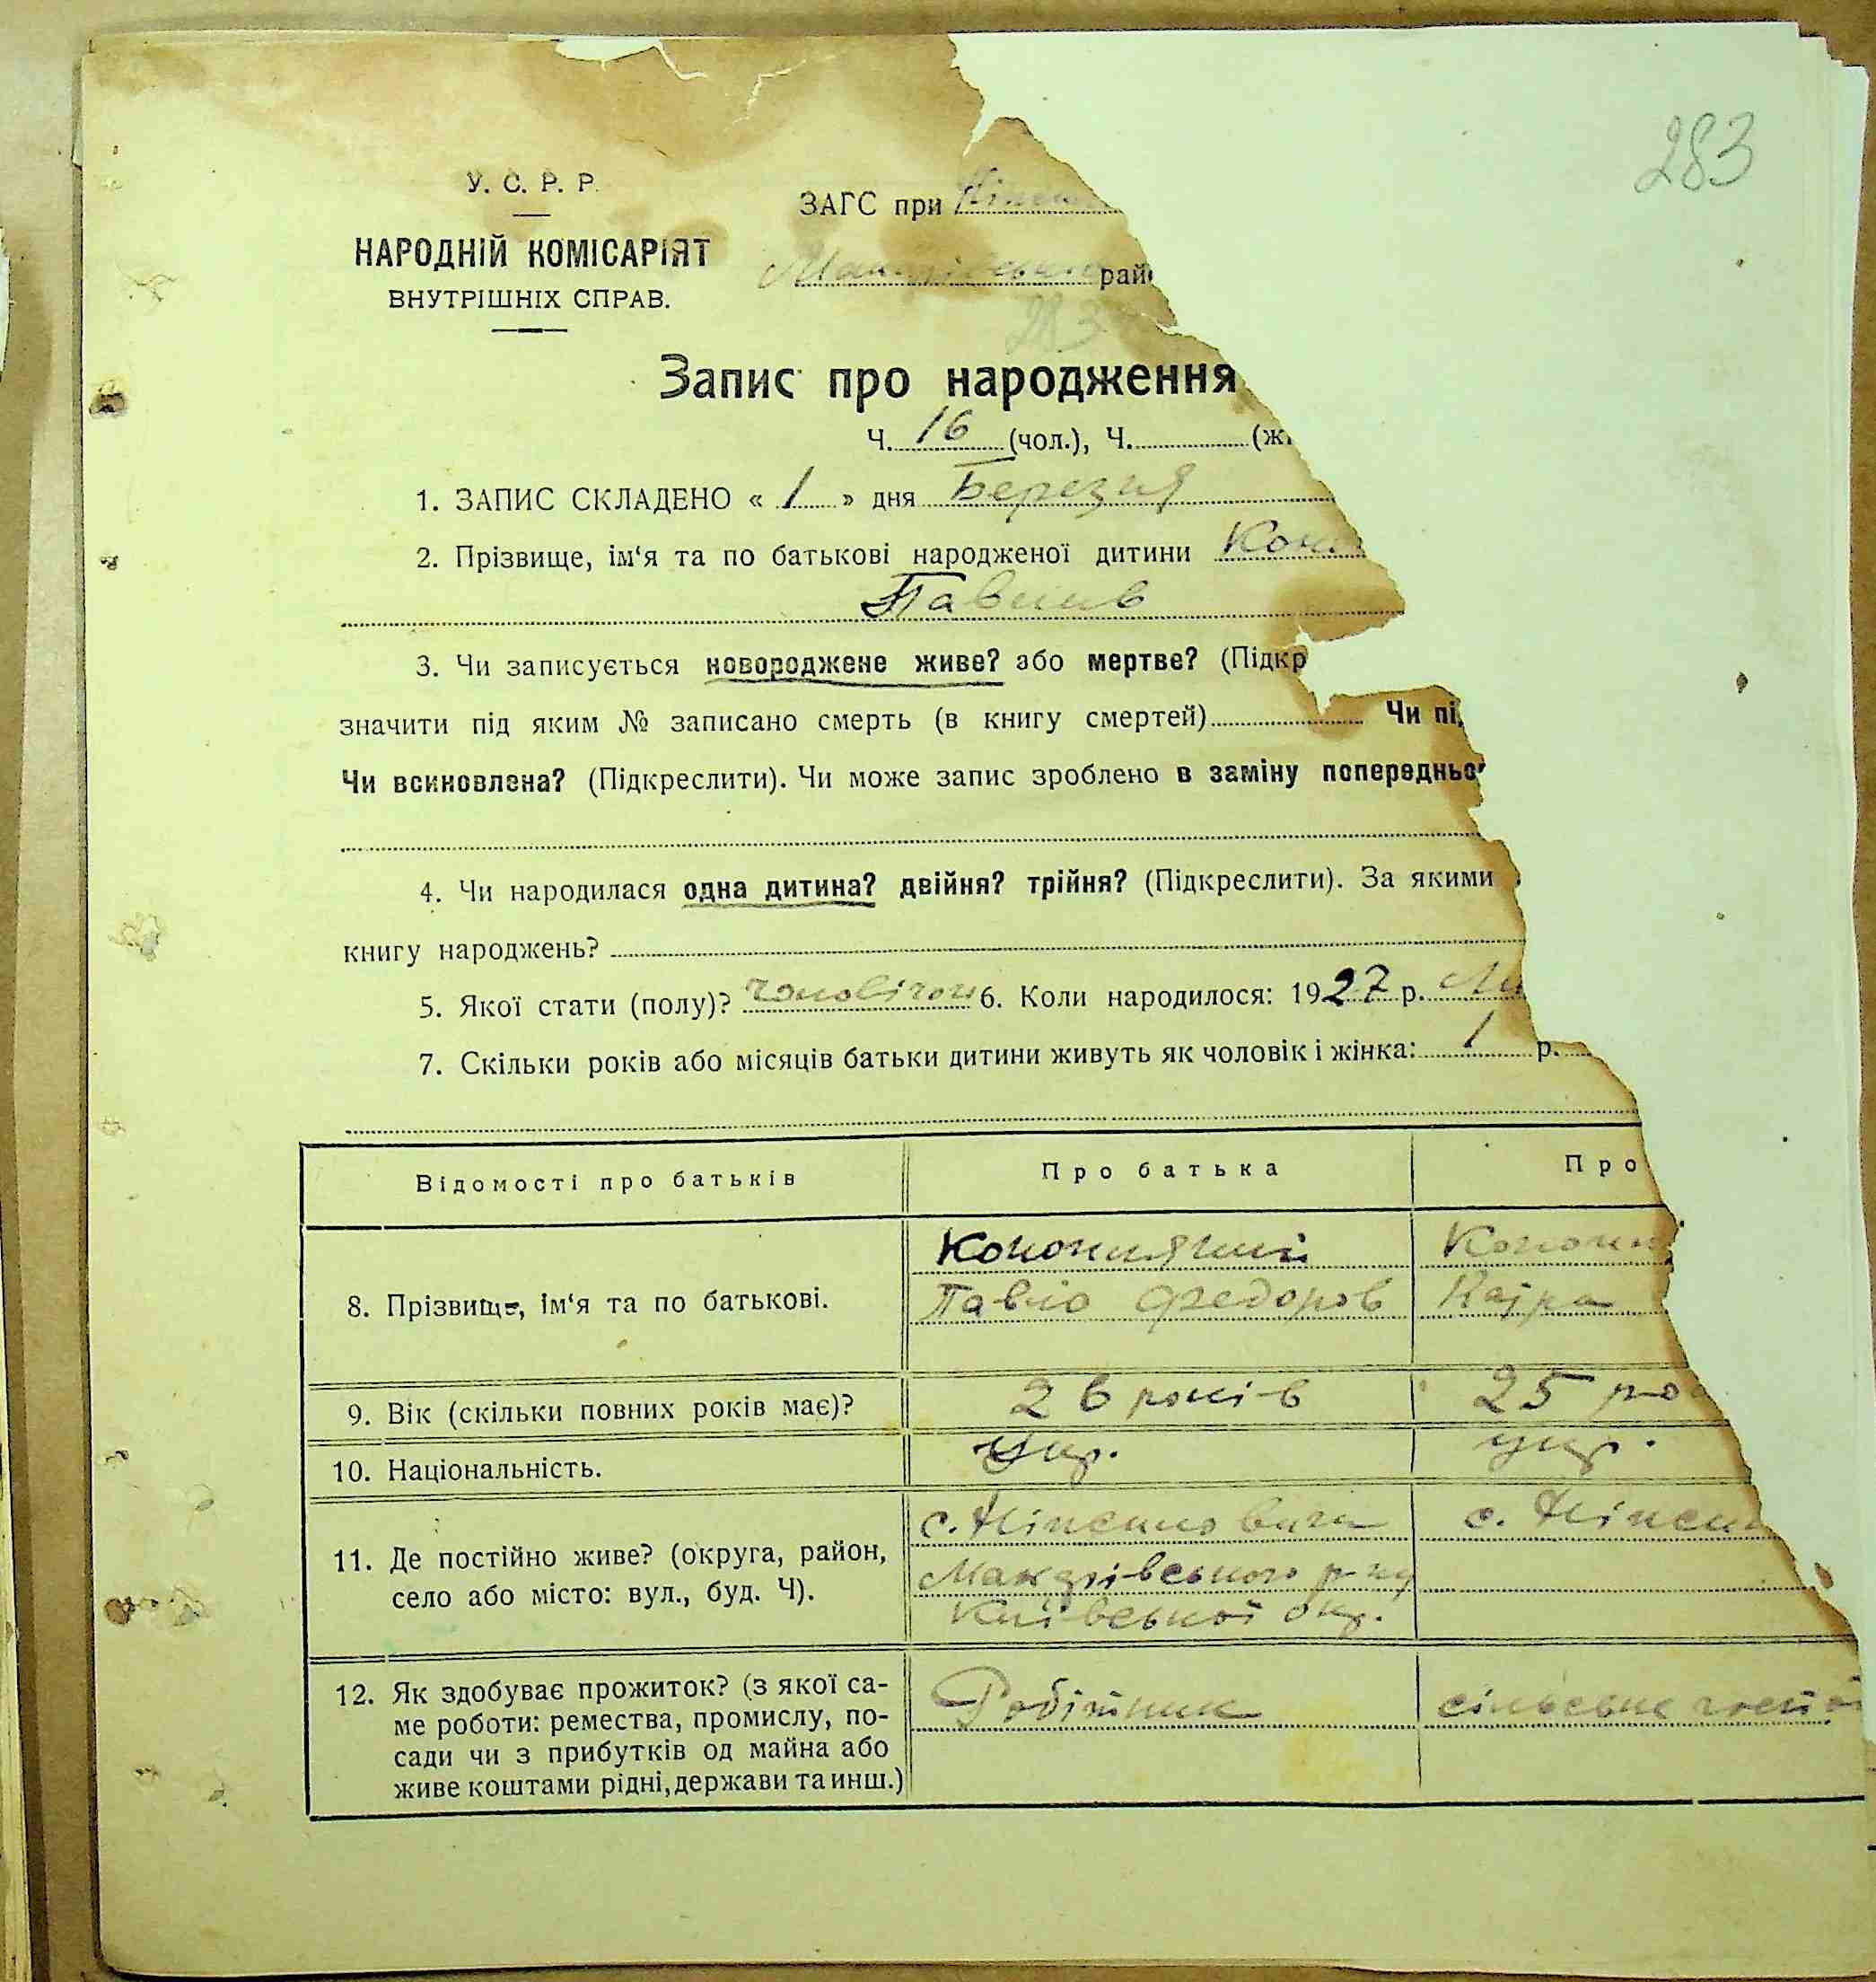 283
У. С. Р. Р.
НАРОДНІЙ КОМІСАРІЯТ
ВНУТРІШНІХ СПРАВ.
ЗАГС при
рай
283
Запис про народження
Ч. 16 (чол.), Ч. (ж
1. ЗАПИС СКЛАДЕНО « 1 » дня Березня
2. Прізвище, ім‘я та по батькові народженої дитини Кон
Павлів
3. Чи записується новороджене живе? або мертве? (Підкр
значити під яким № записано смерть (в книгу смертей) Чи пі
Чи всиновлена? (Підкреслити). Чи може запис зроблено в заміну попереднього
4. Чи народилася одна дитина? двійня? трійня? (Підкреслити). За якими
книгу народжень?
5. Якої стати (полу)? 6. Коли народилося: 1927 р.
7. Скільки років або місяців батьки дитини живуть як чоловік і жінка: 1 р.
Відомості про батьків Про батька Про
8. Прізвище, ім‘я та по батькові.
Павло Федоров
9. Вік (скільки повних років має)? 26 років 25 ро
10. Національність. Укр. укр.
11. Де постійно живе? (округа, район,
село або місто: вул., буд. Ч).
с.
с.
Київської окр.
12. Як здобуває прожиток? (з якої са-
ме роботи: ремества, промислу, по-
сади чи з прибутків од майна або
живе коштами рідні, держави та инш.)
Робітник
сільське госп